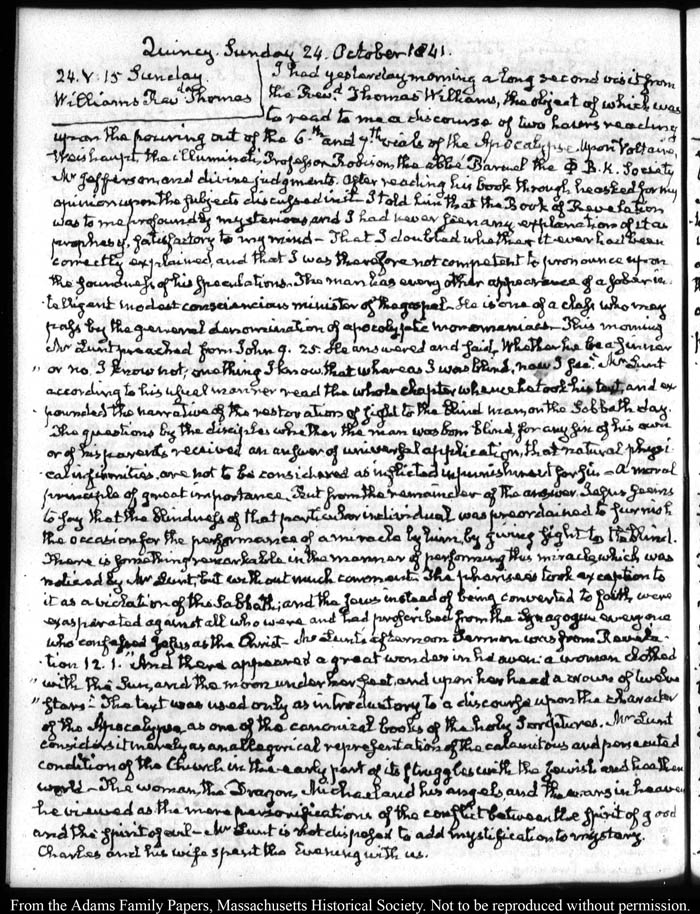 Quincy. Sunday 24. October 1841.
24. V: 15 Sunday.
Williams Revd Thomas
I had yesterday morning a long second visit from
the Revd Thomas Williams, the object of which was
to read to me a discourse of two hours reading
upon the pouring out of the 6th and 7th vials of the Apocalypse upon Voltaire,
Weishaupt, the illuminati, Professor Robison, the abbé Barruel the Φ B. K. Society
Mr Jefferson, and divine judgments. After reading his book through, he asked for my
opinion upon the subjects discussed in it. I told him that the Book of Revelation
was to me profoundly mysterious, and I had never seen any explanation of it as
prophesy, satisfactory to my mind - That I doubted whether it ever had been
correctly explained, and that I was therefore not competent to pronounce upon
the soundness of his speculations. The man has every other appearance of a sober in-
telligent modest consciencious minister of the gospel - He is one of a class who may
pass by the general denomination of apocolyptic monomaniacs - This morning
Mr Lunt preached from John 9. 25. He answered and said, Whether he be a sinner
" or no. I know not; one thing I know, that whereas I was blind, now I see." Mr Lunt
according to his usual manner read the whole chapter whence he took his text, and ex
pounded the narrative of the restoration of sight to the blind man, on the Sabbath day.
The questions by the disciples whether the man was born blind, for any sin of his own
or of his parents received an answer of universal application, that natural physi-
cal infirmities, are not to be considered as inflicted in punishment for sin - A moral
principle of great importance. But from the remainder of the answer Jesus seems
to say that the blindness of that particular individual was preordained to furnish
the occasion for the performance of a miracle by him, by giving sight to the blind.
There is something remarkable in the manner of performing this miracle, which was
noticed by Mr Lunt, but without much comment. The pharisees took exception to
it as a violation of the Sabbath; and the Jews instead of being converted to faith were
exasperated against all who were and had proscribed from the Synagogue every one
who confessed Jesus as the Christ - Mr Lunt's afternoon Sermon was from Revela-
tion 12. 1. "And there appeared a great wonder in heaven: a woman clothed
" with the Sun, and the moon under her feet, and upon her head a crown of twelve
" stars." The text was used only as introductory to a discourse upon the character
of the Apocalypse, as one of the canonical books of the holy Scriptures. Mr Lunt
considers it merely as an allegorical representation of the calamitous and persecuted
condition of the Church in the early part of its struggles with the Jewish and heathen
world - The woman, the Dragon, Michael and his angels and the wars in heaven
he viewed as the mere personifications of the conflict between the spirit of good
and the spirit of evil - Mr Lunt is not disposed to add mystification to mystery.
Charles and his wife spent the Evening with us.
From the Adams Family Papers, Massachusetts Historical Society. Not to be reproduced without permission.